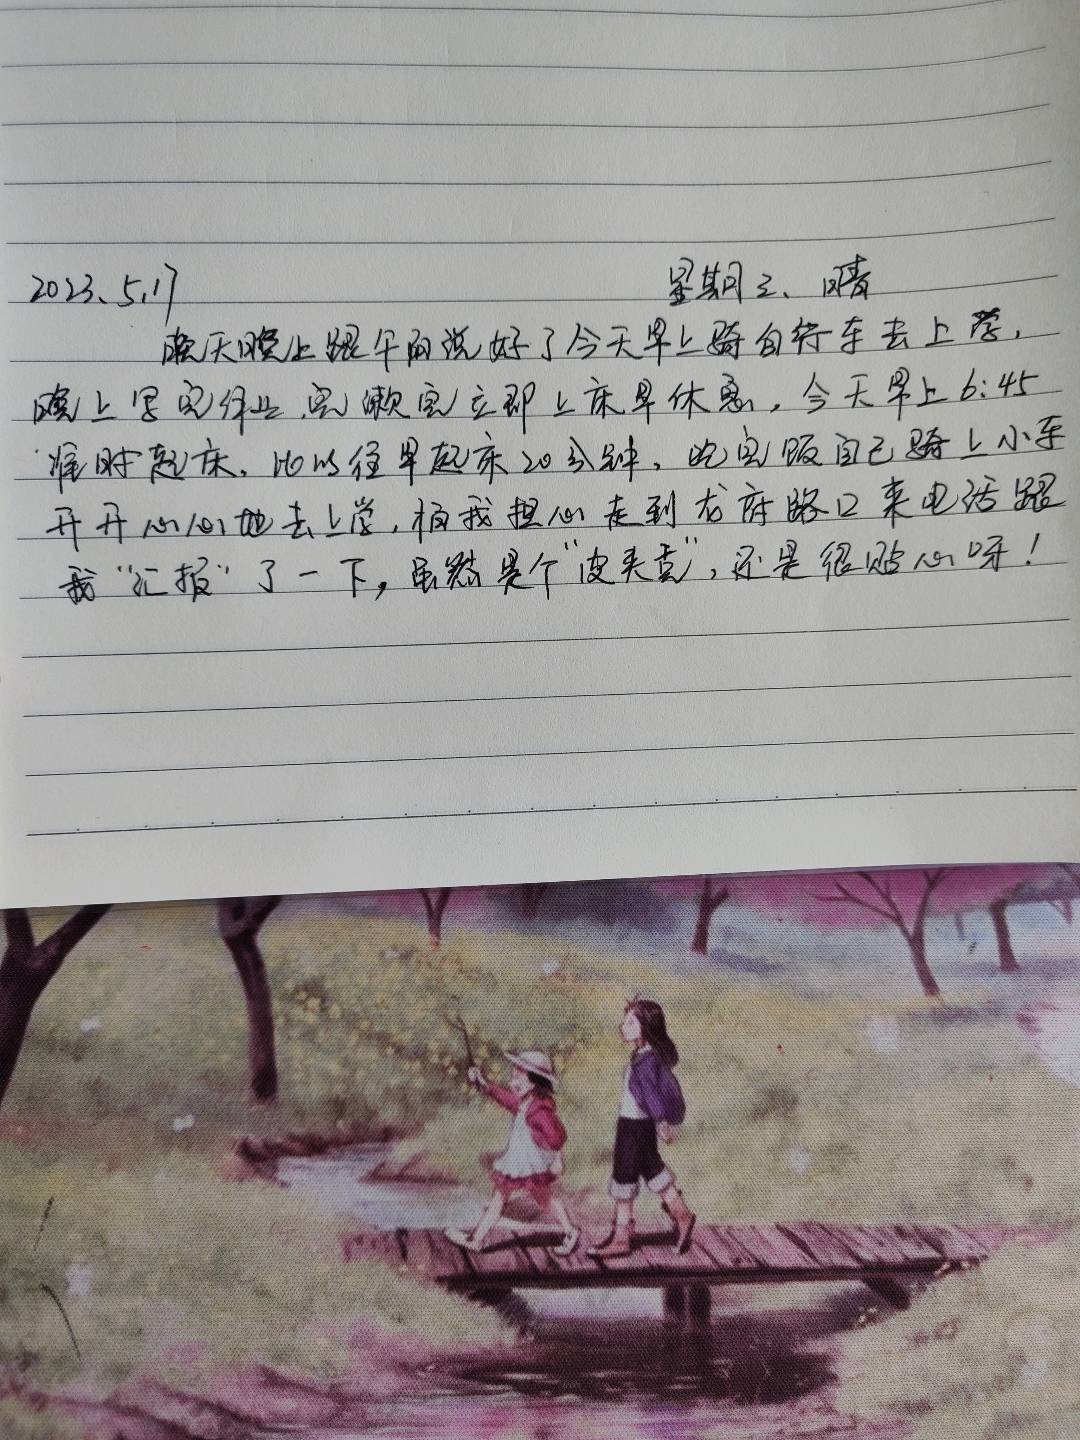 2023、5、17 星期三、晴
天晚上跟午雨说好了今天早上骑自行车去上学，
晚上写完作业、完漱完立即上床早休息，今天早上6:45
准时起床、比以往早起床20分钟、吃完饭自己骑上小车
开开心心地去上学，怕我担心走到龙府路口来电话跟
我“汇报”了一下，虽然是个“皮夹克”，还是很贴心呀！